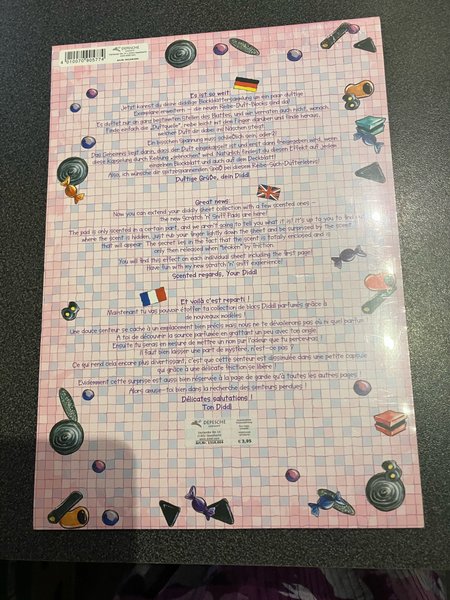 4 010070 805774
DEPESCHE
Es ist so weit!
Jetzt kannst du deine diddlige Blockblättersammlung um ein paar duftige
Exemplare erweitern - die neuen Rubbel-Duft-Blocks sind da!
Es duftet nur an ganz bestimmten Stellen des Blattes, und wir verraten auch nicht, wonach.
Finde einfach die „Duftspur", reibe leicht mit dem Finger darüber und finde heraus,
welcher Duft dir dabei ins Näschen steigt.
Ein bisschen Spannung muss schließlich sein, oder?
Das Geheimnis liegt darin, dass der Duft eingekapselt ist und erst dann freigegeben wird, wenn
diese Kapselung durch Reibung „gebrochen" wird. Natürlich findest du diesen Effekt auf jedem
einzelnen Blockblatt und auch auf dem Deckblatt!
Also, ich wünsche dir spitzenspannenden Spaß bei diesem Reibe-Sich-Dufterlebnis!
Duftige Grüße, dein Diddl
Great news
Now you can extend your diddly sheet collection with a few scented ones -
The new Scratch 'n' Sniff Pads are here!
The pad is only scented in a certain part, and we aren't going to tell you what it is! It's up to you to find out
where the scent is hidden. Just rub your finger lightly down the sheet and be surprised by the scent
that will appear. The secret lies in the fact that the scent is totally enclosed and is
only then released when "broken" by friction.
You will find this effect on each individual sheet including the first page.
Have fun with my new scratch'n'sniff experience!
Scented regards, Your Diddl
Et voilà c'est reparti !
Maintenant tu vas pouvoir étoffer ta collection de blocs Diddl parfumés grâce à
de nouveaux modèles !
Une douce senteur se cache à un emplacement bien précis mais nous ne te dévoilerons pas où ni quel parfum
A toi de découvrir la source parfumée en grattant un peu avec ton ongle.
Ensuite tu seras en mesure de mettre un nom sur l'odeur que tu percevras !
Il faut bien laisser une part de mystère, n'est-ce pas ?
Ce qui rend cela encore plus divertissant, c'est que cette senteur est dissimulée dans une petite capsule
qui grâce à une délicate friction se libère !
Evidemment cette surprise est aussi bien réservée à la page de garde qu'à toutes les autres pages !
Alors amuse-toi bien dans la recherche des senteurs perdues !
Délicates salutations !
Ton Diddl
DEPESCHE
€ 3,95